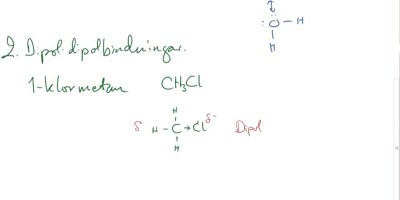 :O-H
H
2. Dipol-dipolbindningar.
1-klormetan CH3Cl
H
δ H-C→Cl δ- Dipol
H